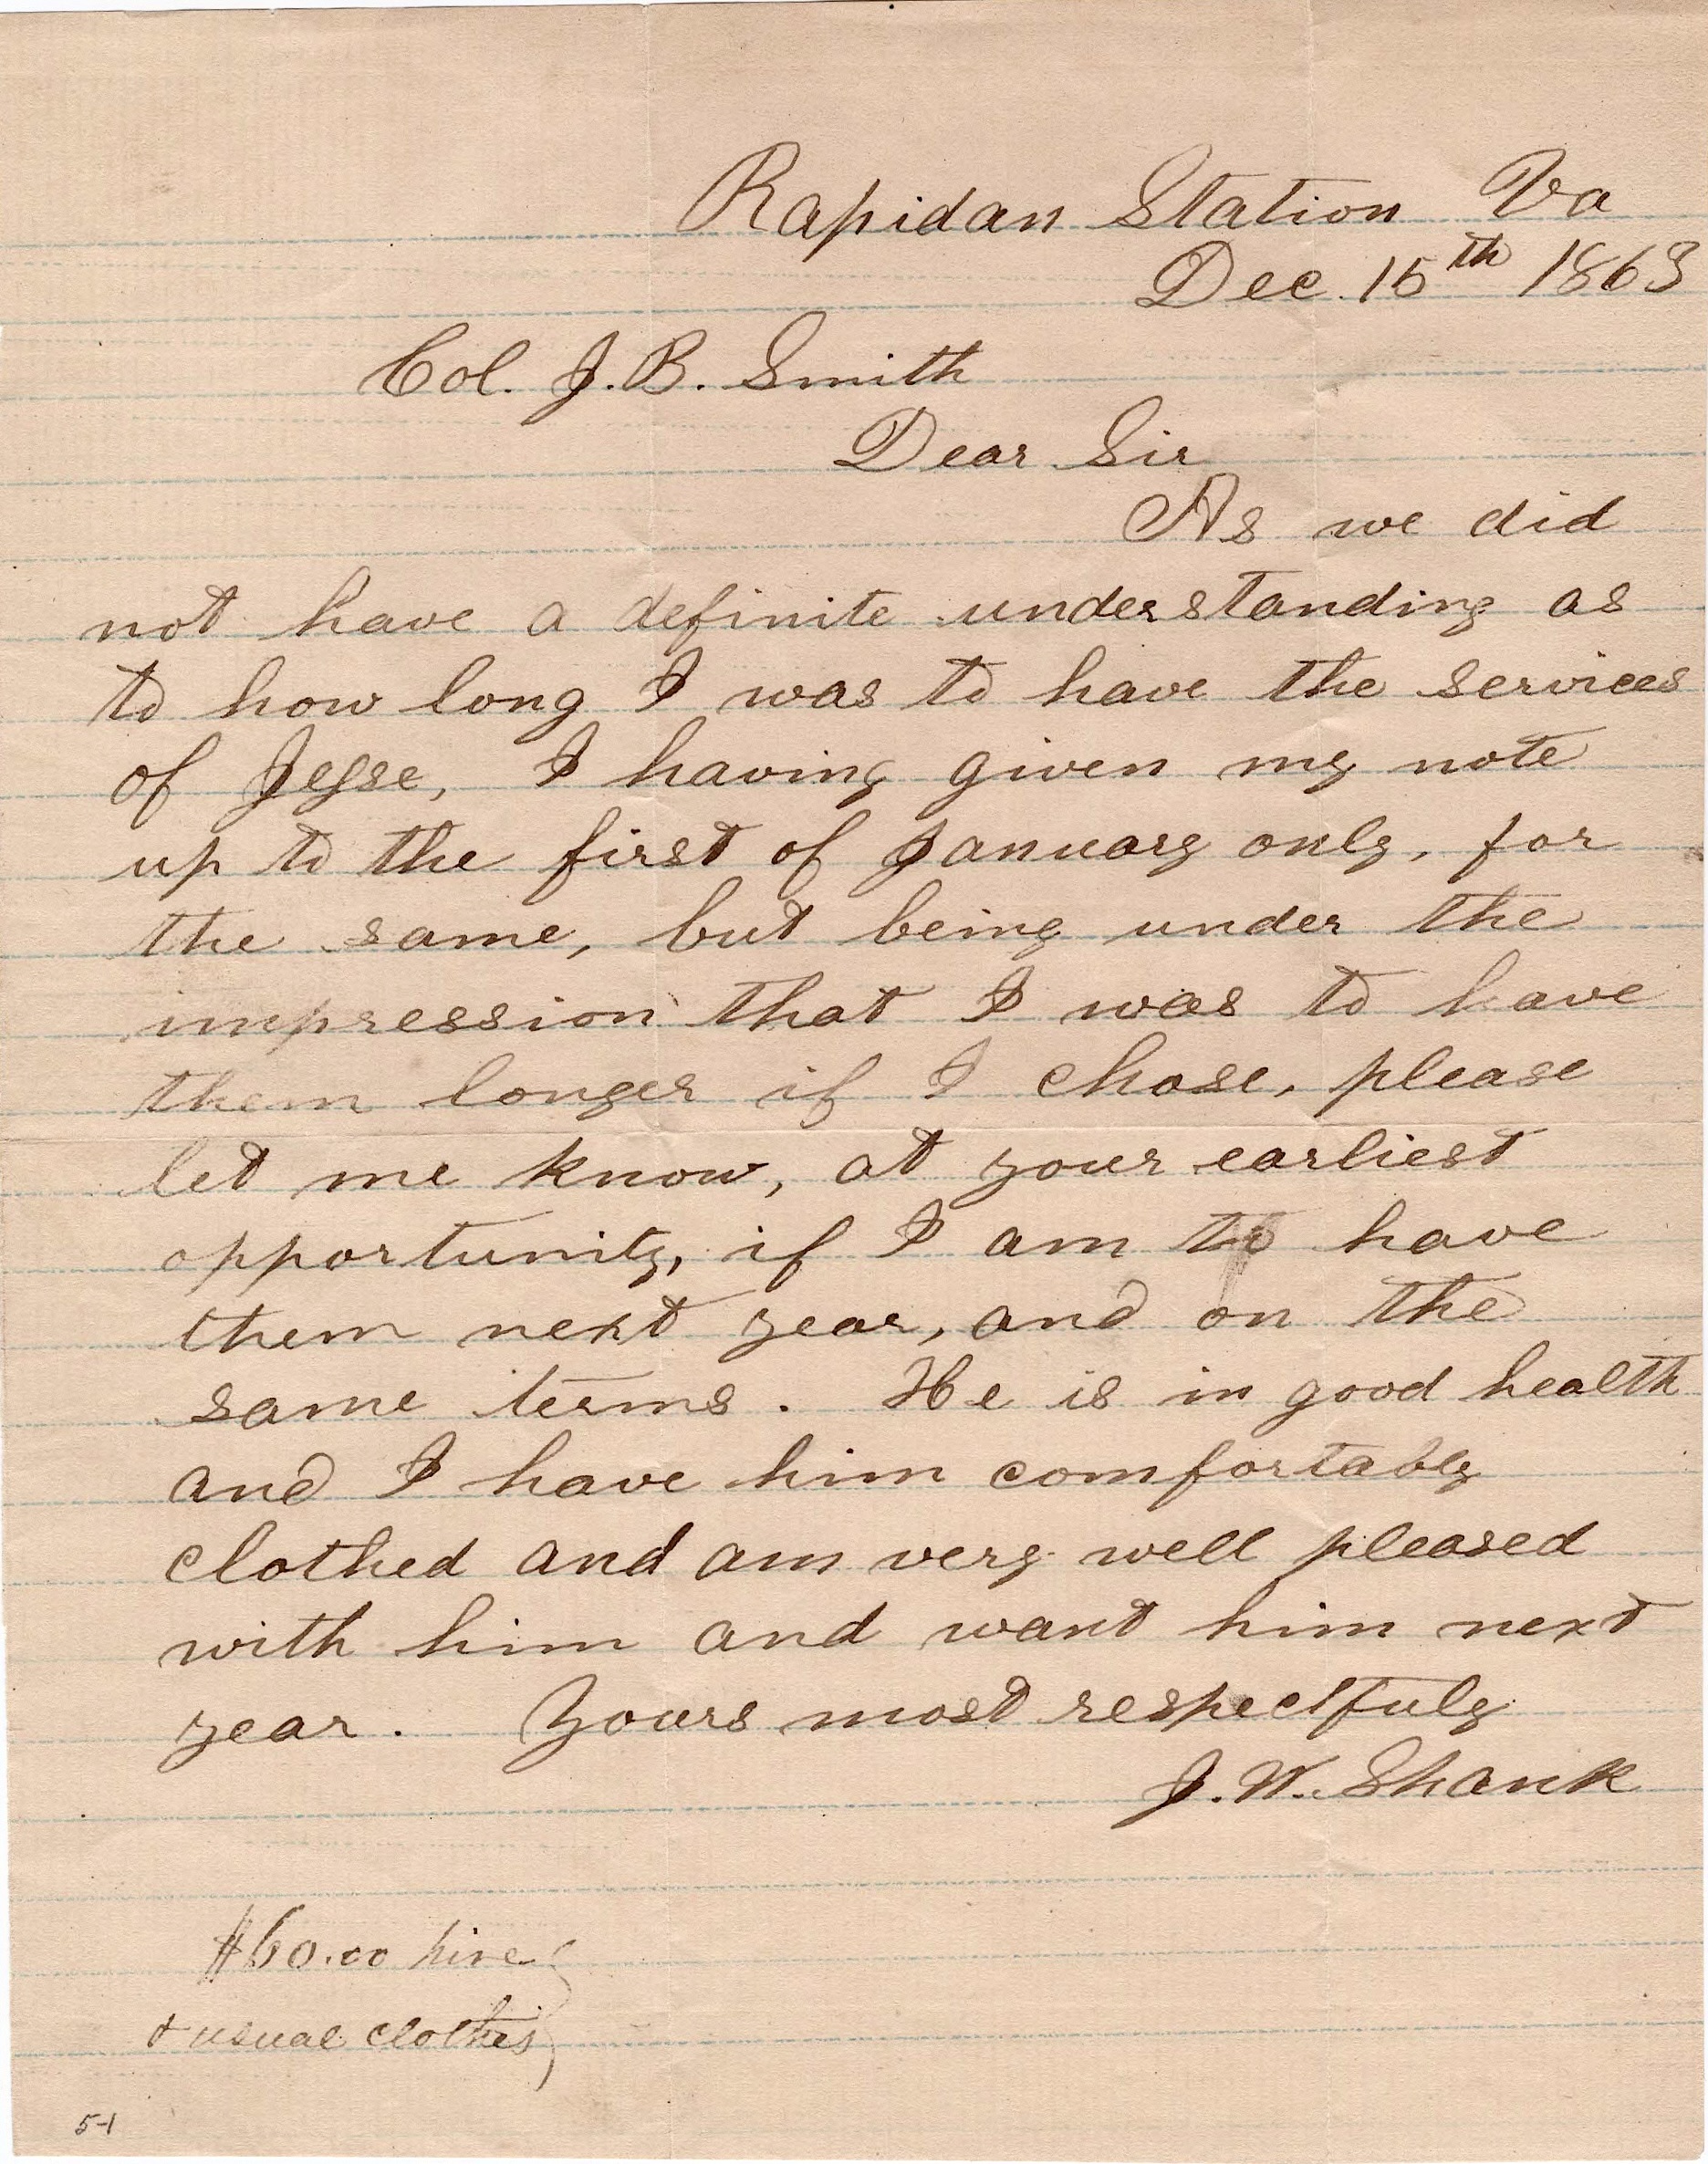 Rapidan Station Va
Dec. 15th 1863
Col. J. B. Smith
Dear Sir
As we did
not have a definite understanding as
to how long I was to have the services
of Jesse, I having given my note
up to the first of January only, for
the same, but being under the
impression that I was to have
them longer if I chose, please
let me know, at your earliest
opportunity, if I am to have
them next year, and on the
same terms. He is in good health
and I have him comfortably
clothed and am very well pleased
with him and want him next
year. Yours most respectfuly
J. W. Shank
$60.00 hire
& usual clothes
5-1